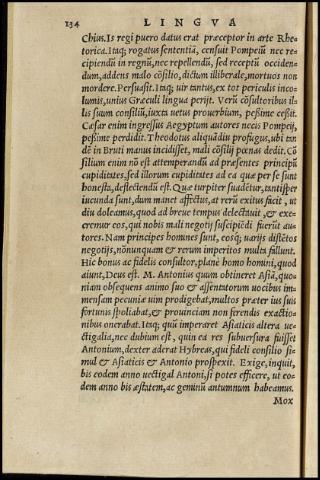 134 LINGVA
Chius. Is regi puero datus erat præceptor in arte Rhe-
torica. Itaq; rogatus sententiã, censuit Pompeiũ nec re-
cipiendũ in regnũ, nec repellendũ, sed receptũ occiden-
dum, addens malo cõsilio, dictum illiberale, mortuos non
mordere. Persuasit. Itaq; uir tantus, ex tot periculis inco-
lumis, unius Græculi lingua perijt. Verũ cõsultoribus il-
lis suum consiliũ, iuxta uetus prouerbium, peßime ceßit.
Cæsar enim ingressus Aegyptum autores necis Pompeij,
peßime perdidit. Theodotus aliquãdiu profugus, ubi tan
dẽ in Bruti manus incidisset, mali cõsilij pœnas dedit. Cõ
silium enim nõ est attemperandũ ad præsentes principũ
cupiditates, sed illorum cupiditates ad ea quæ per se sunt
honesta, deflectendũ est. Quæ turpiter suadẽtur, tantisper
iucunda sunt, dum manet affectus, at rerũ exitus facit, ut
diu doleamus, quod ad breue tempus delectauit, & exe-
cremur eos, qui nobis mali negotij suscipiẽdi fuerũt au-
tores. Nam principes homines sunt, eosq; uarijs distẽtos
negotijs, nõnunquam & rerum imperitos multa fallunt.
Hic bonus ac fidelis consultor, plane homo homini, quod
aiunt, Deus est. M. Antonius quum obtineret Asiã, quo-
niam obsequens animo suo & assentatorum uocibus im-
mensam pecuniæ uim prodigebat, multos præter ius suis
fortunis spoliabat, & prouinciam non ferendis exactio-
nibus onerabat. Itaq; quũ imperaret Asiaticis altera ue-
ctigalia, nec dubium est, quin ea res subuersura fuisset
Antonium, dexter aderat Hybreas, qui fideli consilio si-
mul & Asiaticis & Antonio prospexit. Exige, inquit,
bis eodem anno uectigal Antoni, si potes efficere, ut eo-
dem anno bis æstatem, ac geminũ autumnum habeamus.
Mox